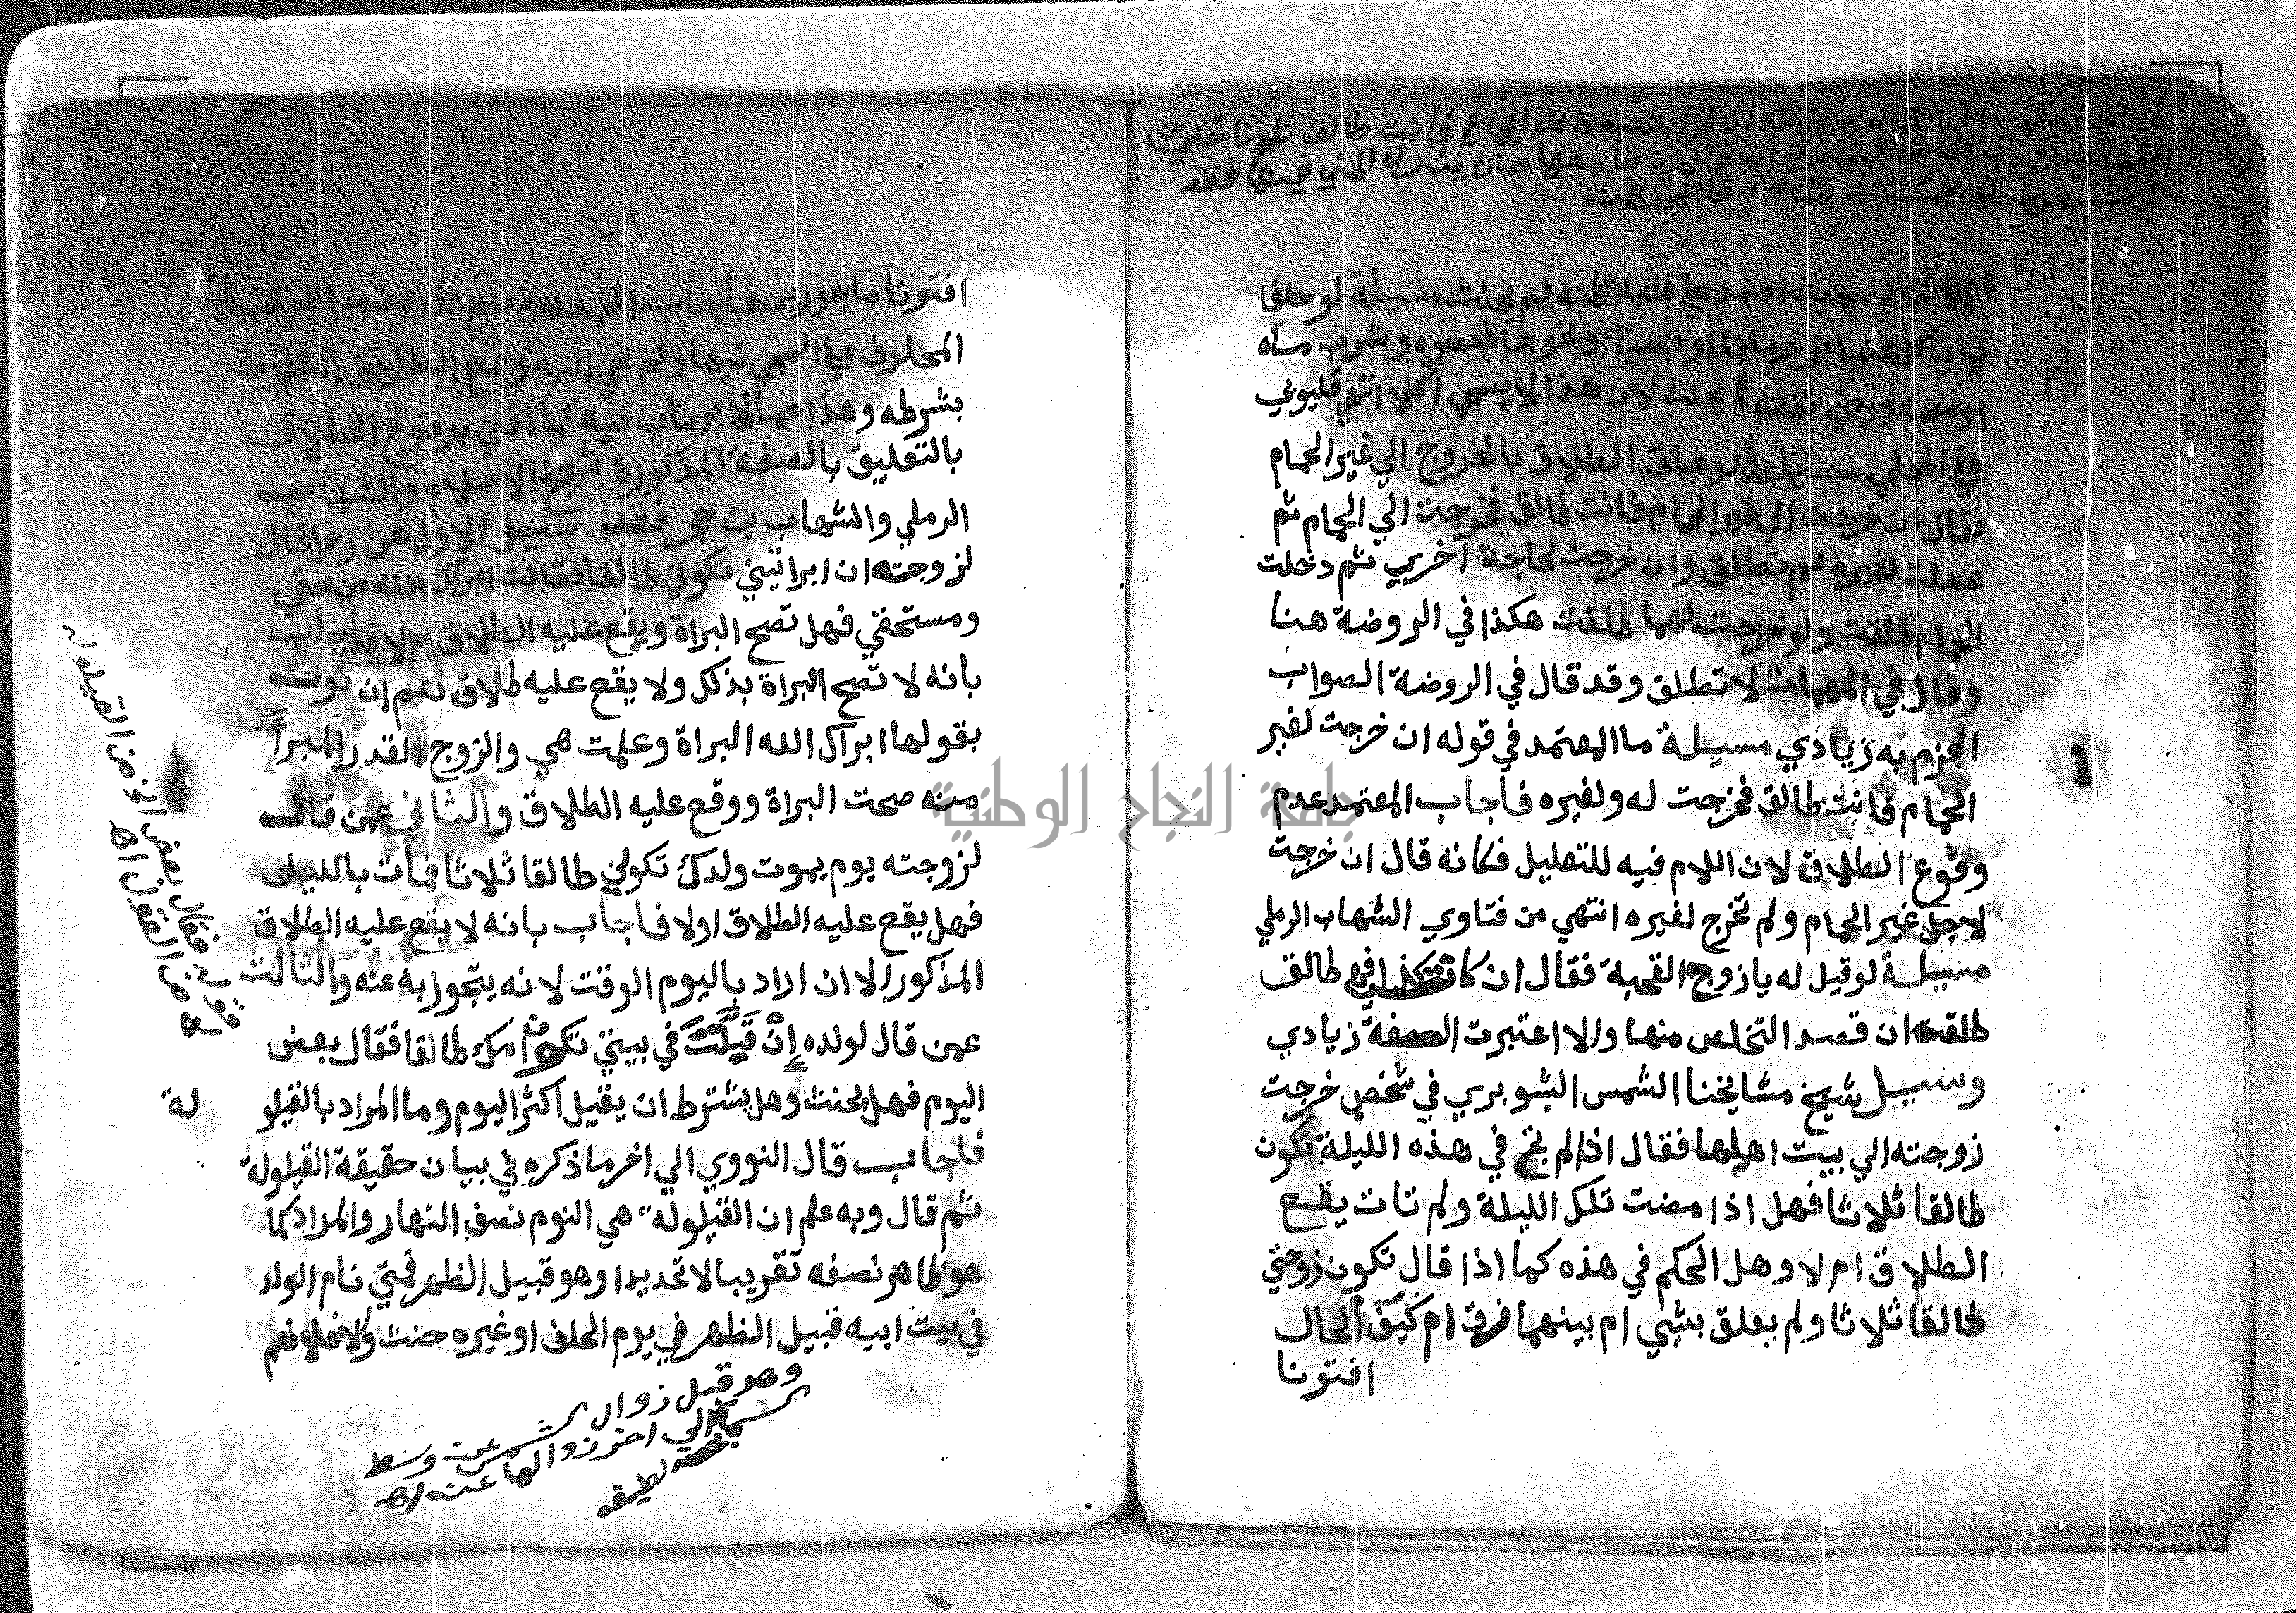 مسئلة رجل حلف فقال لامراته ان لم اشبعك من الجماع فانت طالق ثلاثا حكي عن
الفقيه ابي البخاري انه قال ان جامعها حتى ينزل المني فيها فقد
اشبعها فلا يحنث اه فتاوى قاضي خان
٤٨
حيث اعتمد على غلبة ظنه لم يحنث مسيلة لو حلف
لا ياكل عنبا او رمانا او قصبا ونحوها فعصره وشرب ماه
او مصه ورمي تفله لم يحنث لان هذا لا يسمي اكلا انتهي قليوبي
علي المحلي مسيلة لو علق الطلاق بالخروج الي غير الحمام
فقال ان خرجت الي غير الحمام فانت طالق فخرجت الي الحمام ثم
عدلت لغيره لم تطلق وان خرجت لحاجة اخري ثم دخلت
الحمام طلقت ولو خرجت لهما طلقت هكذا في الروضة هنا
وقال في المهمات لا تطلق وقد قال في الروضة الصواب
الجزم به زيادي مسيلة ما المعتمد في قوله ان خرجت لغير
الحمام فانت طالق فخرجت له ولغيره فاجاب المعتمد عدم
وقوع الطلاق لان اللام فيه للتعليل فكانه قال ان خرجت
لاجل غير الحمام ولم تخرج لغيره انتهي من فتاوي الشهاب الرملي
مسيلة لو قيل له يازوج القحبة فقال ان كانت كذا فهي طالق
طلقت ان قصد التخلص منها والا اعتبرت الصفة زيادي
وسيل شيخ مشايخنا الشمس الشوبري في شخص خرجت
زوجته الي بيت اهلها فقال اذا لم تج في هذه الليلة تكون
طالقا ثلاثا فهل اذا مضت تلك الليلة ولم تات يقع
الطلاق ام لا وهل الحكم في هذه كما اذا قال تكون زوجتي
طالقا ثلاثا ولم يعلق بشي ام بينهما فرق ام كيف الحال
افتونا
٤٩
افتونا ماجورين فاجاب الحمد لله نعم اذا مضت الليلة
المحلوف علي المجي فيها ولم تجي اليه وقع الطلاق الثلاث
بشرطه وهذا مما لا يرتاب فيه كما افتي بوقوع الطلاق
بالتعليق بالصفة المذكورة شيخ الاسلام والشهاب
الرملي والشهاب بن حجر فقد سيل الاول عن رجل قال
لزوجته ان ابراتيني تكوني طالقا فقالت ابراك الله من حقي
ومستحقي فهل تصح البراة ويقع عليه الطلاق ام لا فاجاب
بانه لا تصح البراة بذلك ولا يقع عليه طلاق نعم ان نوت
بقولها ابراك الله البراة وعلمت هي والزوج القدر المبرأ
منه صحت البراة ووقع عليه الطلاق والثاني عمن قال
لزوجته يوم يموت ولدك تكوني طالقا ثلاثا فمات بالليل
فهل يقع عليه الطلاق اولا فاجاب بانه لا يقع عليه الطلاق
المذكور الا ان اراد باليوم الوقت لانه يتجوز به عنه والثالث
عمن قال لولده إن قَيَّلْتَ في بيتي تكون امك طالقا فقال بعض
اليوم فهل يحنث وهل يشترط ان يقيل اكثر اليوم وما المراد بالقيلو
لة
فاجاب قال النووي الي اخر ما ذكره في بيان حقيقة القيلولة
ثم قال وبه علم ان القيلولة هي النوم نصف النهار والمراد كما
هو ظاهر نصفه تقريبا لا تحديدا وهو قبيل الظهر فمتي نام الولد
في بيت ابيه قبيل الظهر في يوم الحلف او غيره حنث والا فلا نعم
وهو قبل زوال الشمس عن وسط
السما الي اخر زوالها عنه اه
لطيفه
قوله فقال بعض الخ من القيلولة
لا من القول اه
جامعة النجاح الوطنية